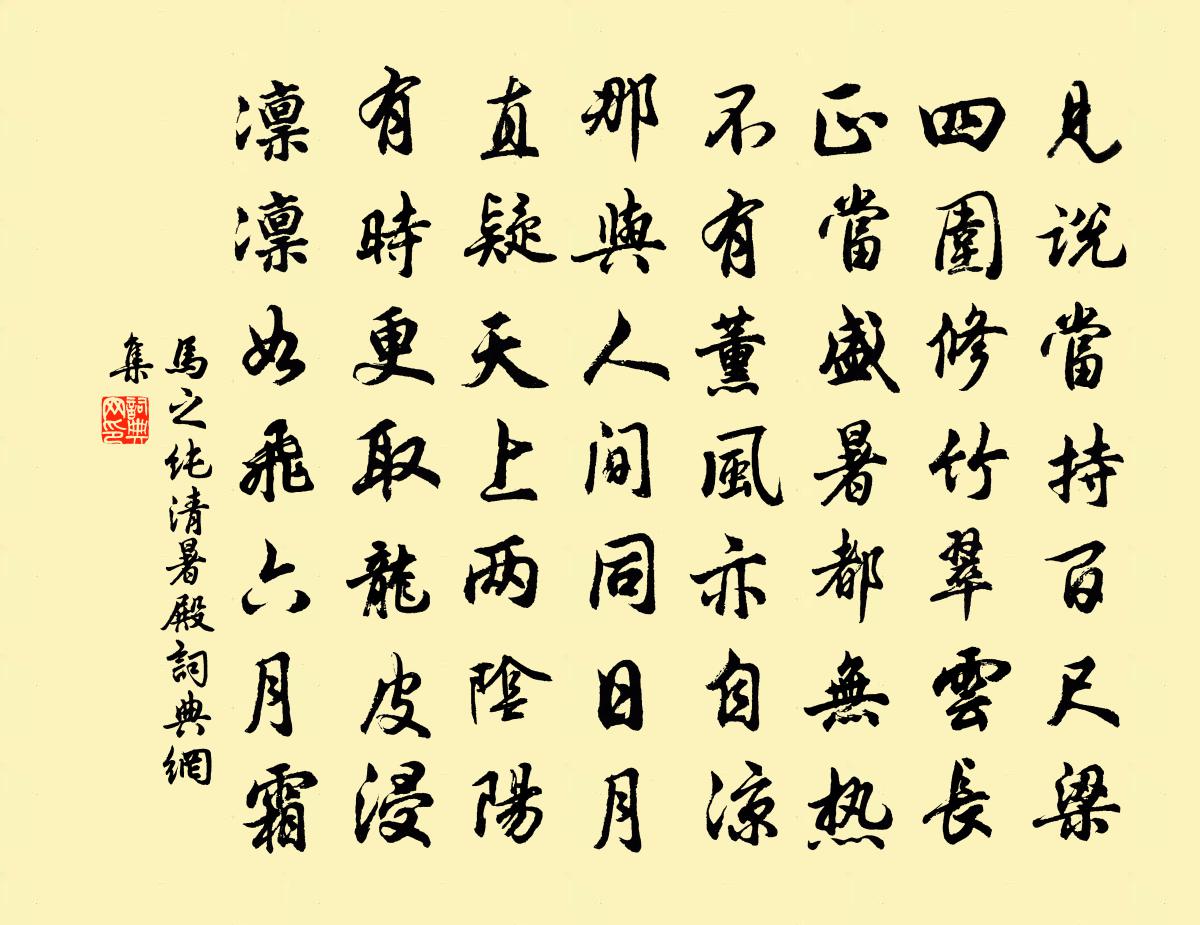 見説當持百尺梁
四圍修竹翠雲長
正當盛暑都無热
不有薰風亦自凉
那與人間同日月
直疑天上两陰陽
有時更取龍皮浸
凛凛如飛六月霜
馬之純清暑殿詞典網
集
詞典网印